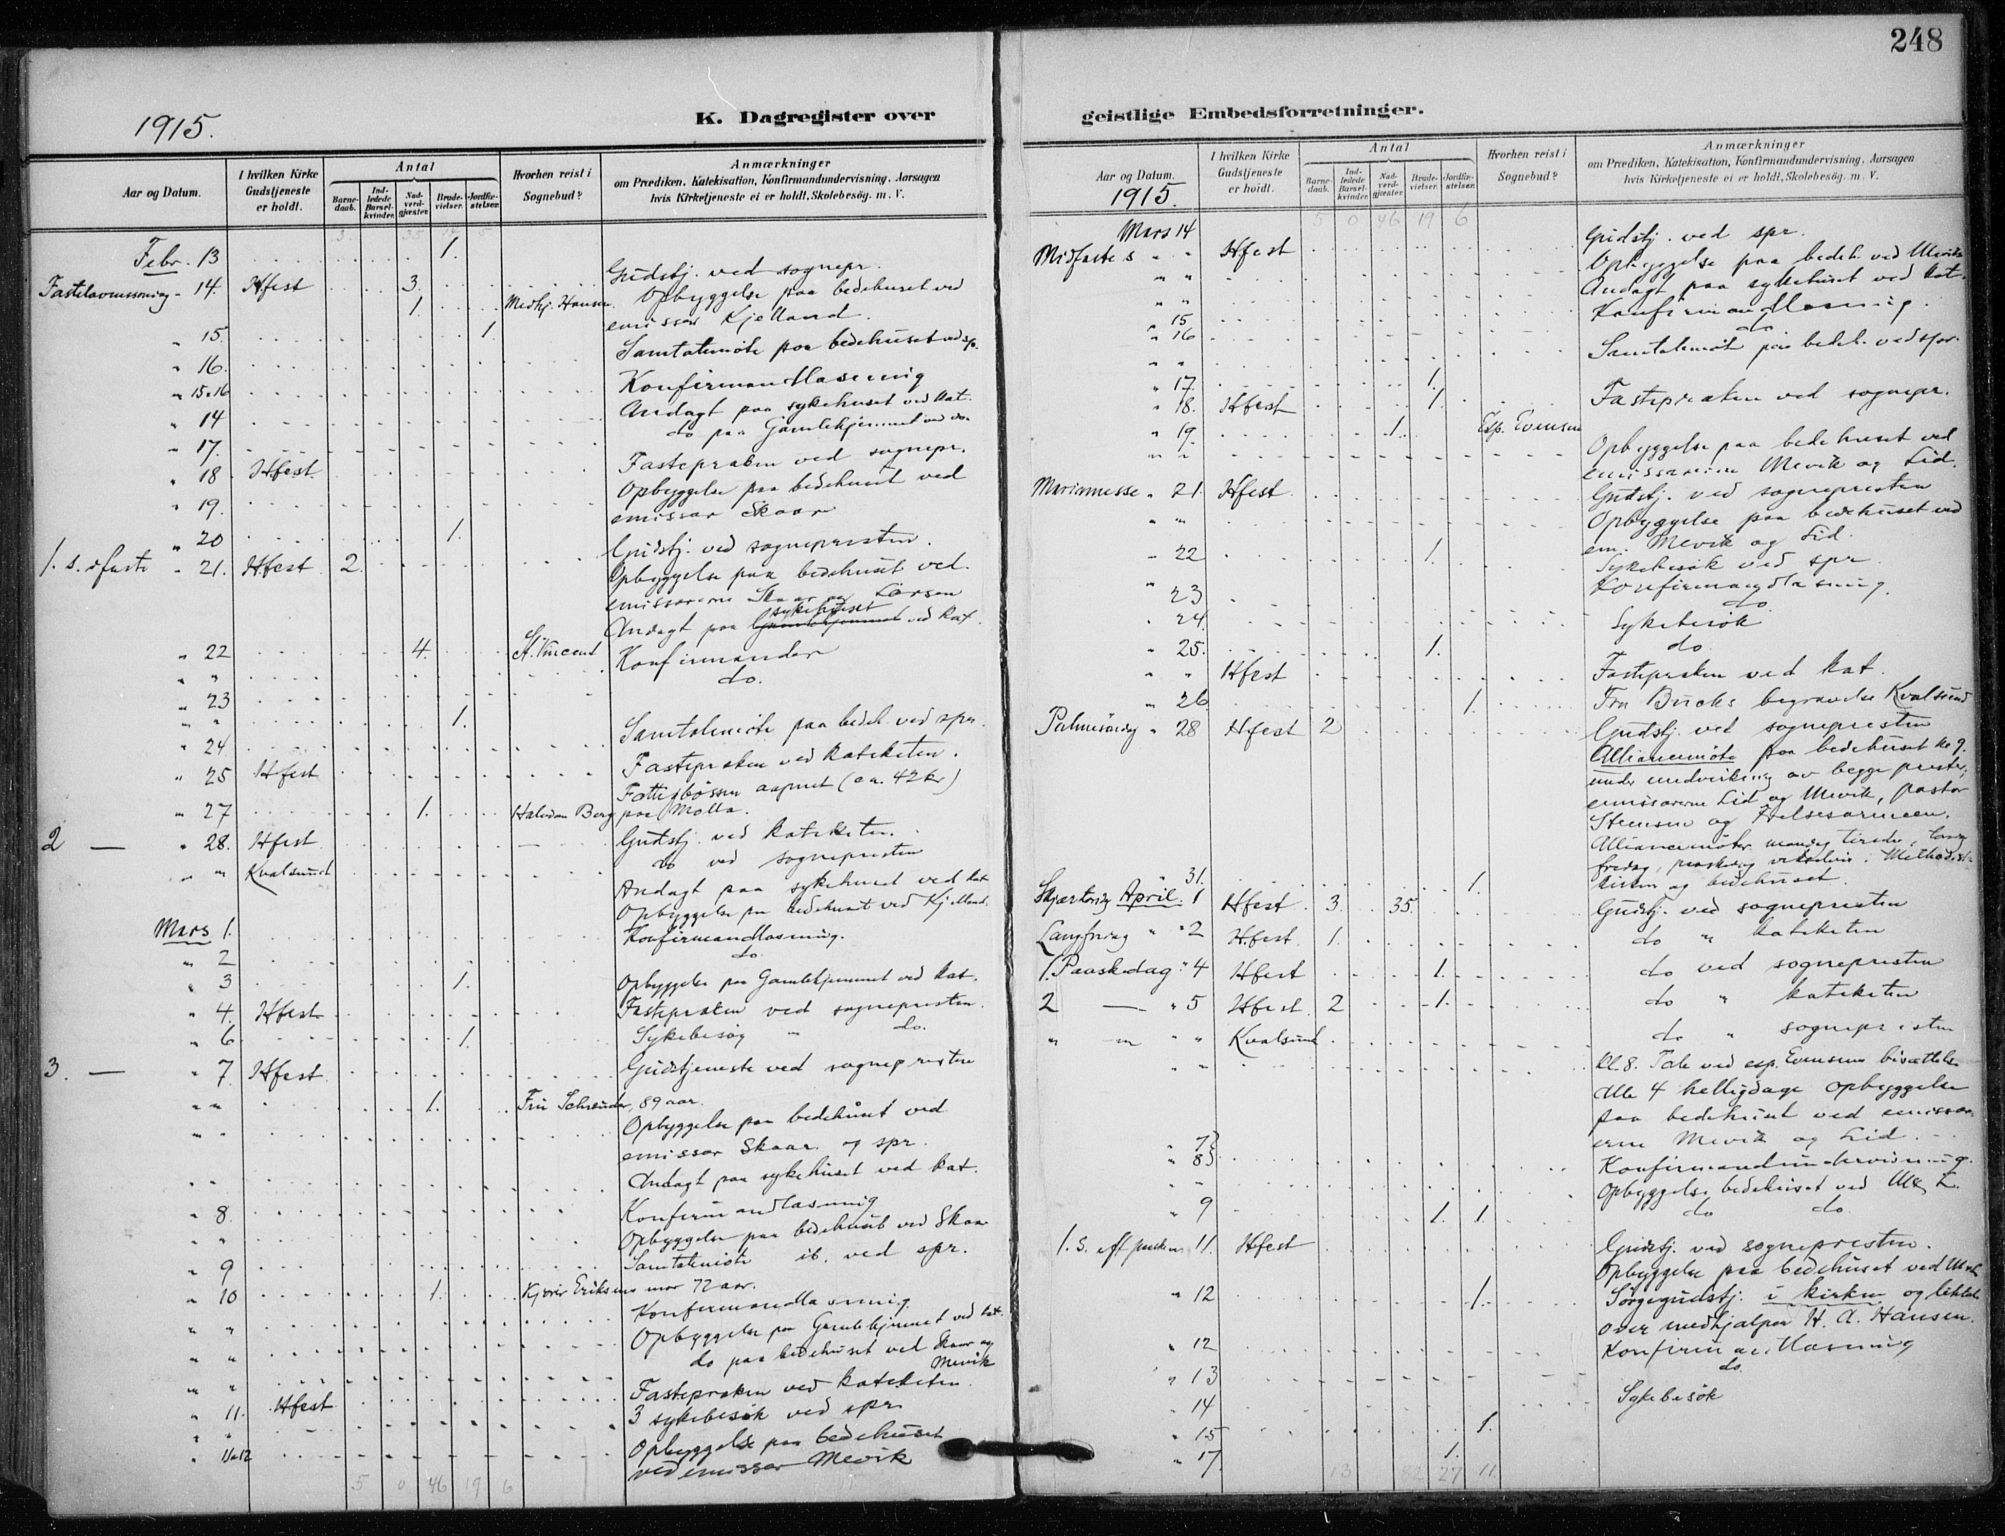 248
1915.
K. Dagregister over
geistlige Embedsforretninger.
Aar og Datum.
I hvilken Kirke Gudstjeneste er holdt.
Antal
Barne-daab.
Ind-ledede Barsel-kvinder.
Nad-verd-gjæster
Brude-vielser.
Jordfæ-stelser.
Hvorhen reist i Sognebud?
Anmærkninger
om Prædiken, Katekisation, Konfirmandundervisning, Aarsagen
hvis Kirketjeneste ei er holdt, Skolebesøg. m. V.
Febr. 13 1.
Fastelavnssøndag - 14. Hfest 3. Gudstj. ved sognepr.
1. Medhj. Hansen Opbyggelse paa bedehuset ved
emissær Kjelland.
" 15. 1. Samtalemøte paa bedehuset ved sp.
" 16.
" 15 & 16 Konfirmandlæsning
" 14 Andagt paa sykehuset ved kat.
" 17. do paa Gamlehjemmet ved do.
" 18 Hfest. Fastepræken ved sognepr.
" 19. Opbyggelse paa bedehuset ved
emissær Skaar
" 20 1.
1. s. i faste " 21. Hfest 2 Gudstj. ved sognepresten.
Opbyggelse paa bedehuset ved
emissærerne Skaar og Larsen
Andagt paa sykehuset ved kat.
" 22 4. St. Vincent Konfirmander
" " do.
" 23
" " 1.
" 24 Samtalemøte paa bedeh. ved spr.
" 25 Hfest Fastepræken ved kateketen.
Fattigbøssen aapnet (ca. 42 kr)
" 27 1. Halvdan Berg paa Molla.
2 — " 28. Hfest Gudstj. ved kateketen.
" " Kvalsund do ved sognepresten
Andagt paa sykehuset ved kat
Opbyggelse paa bedehuset ved Kjelland.
Mars 1. Konfirmandlæsning.
" 2 do.
" 3 1. Opbyggelse paa Gamlehjemmet ved kat.
" 4. Hfest Fastepræken ved sognepresten.
" 6 1. Sykebesøg " do.
3. — " 7 Hfest Gudstjeneste ved sognepresten
" " 1. Fru Schrøuder, 89 aar.
" " Opbyggelse paa bedehuset ved
emissær Skaar og spr.
" " Andagt paa sykehuset ved kat.
" 8. Konfirmandlæsning
" " Opbyggelse paa bedehuset ved Skaar
" 9 Samtalemøte ib. ved spr.
" 10 1. Eriksens mor 72 aar.
Konfirmandlæsning
" " Opbyggelse paa Gamlehjemmet ved kat.
" " do paa bedehuset ved Skaar og
Mevik
" " Fastepræken ved kateketen.
" 11. Hfest 3 sykebesøk ved spr.
" 11 & 12 Opbyggelse paa bedehuset
ved emissær Mevik
5 0 46 19 6
Aar og Datum.
1915.
I hvilken Kirke Gudstjeneste er holdt.
Antal
Barne-daab.
Ind-ledede Barsel-kvinder.
Nad-verd-gjæster
Brude-vielser.
Jordfæ-stelser.
Hvorhen reist i Sognebud?
Anmærkninger
om Prædiken, Katekisation, Konfirmandundervisning, Aarsagen
hvis Kirketjeneste ei er holdt, Skolebesøg. m. V.
5 0 46 19 6
Mars 14
Midfaste s. " " Hfest Gudstj. ved spr.
" " Opbyggelse paa bedeh. ved Mevik
" " Andagt paa sykehuset ved kat.
" 15 Konfirmandlæsning.
" 16 do
" " Samtalemøte paa bedeh. ved spr.
" 17. 1.
" 18. Hfest 1. Fastepræken ved sognepr.
" 19. 1. Esp. Evensen
" " Opbyggelse paa bedehuset ved
emissærerne Mevik og Lid.
Mariamesse " 21 Hfest Gudstj. ved sognepresten
" " Opbyggelse paa bedehuset ved
em. Mevik og Lid.
" 22 1. Sykebesøk ved spr
" 23 Konfirmandlæsning.
" 24 do
Sykebesøk
" 25. 1. do
" " Hfest Fastepræken ved kat.
" 26 1. Fru Bucks begravelse Kvalsund
Palmesøndag " 28 Hfest 2 Gudstj. ved sognepresten
Alliancemøte paa bedehuset kl 9.
under medvirkning av begge prester,
emissærerne Lid og Mevik, pastor
Stensen og Frelsesarmeen.
Alliancemøter mandag, tirsdag, lang
fredag, paaskedag vekselvis i Methodist
kirken og bedehuset.
" 31. 1.
Skjærtorsdag April 1 Hfest 3. 35. Gudstj. ved sognepresten
Langfredag " 2 Hfest. 1. do " kateketen
1. Paaskedag " 4 Hfest 1. do ved sognepresten
2 — " 5 Hfest 2 1. do " kateketen
" — " " Kvalsund do " sognepresten
" " Kl. 8. Tale ved esp. Evensens bisættelse
Alle 4 helligdage opbyggelse
paa bedehuset ved emissær
erne Mevik og Lid.
" 7
" 8 } Konfirmandundervisning.
" Opbyggelse bedehuset ved M & L.
" 9 1. 1. do do.
1. S. eft paasken 11. Hfest Gudstj. ved sognepresten.
Opbyggelse paa bedehuset ved
" 12 1. Sørgegudstj. i kirken og
over medhjælper H. A. Hansen.
" 12 Konfirmandlæsning
" 13 do.
" 14 Sykebesøk
" 15 1.
" 17 1.
13 82 27 11